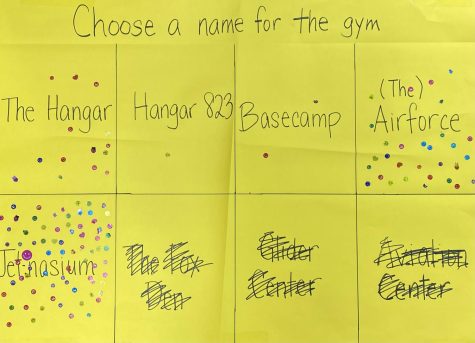 Choose a name for the gym
The Hangar
Hangar 823
Basecamp
(The)
Airforce
Jet-nasium
The Fox
Den
Glider
Center
Aviation
Center